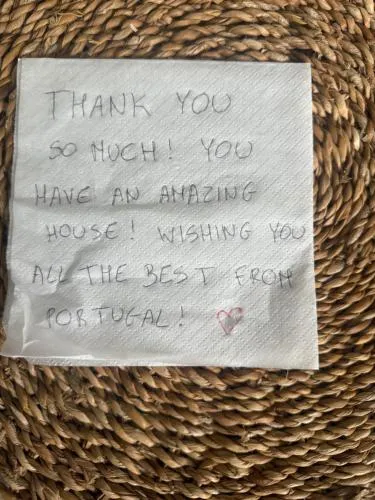 THANK YOU
SO MUCH! YOU
HAVE AN AMAZING
HOUSE! WISHING YOU
ALL THE BEST FROM
PORTUGAL!